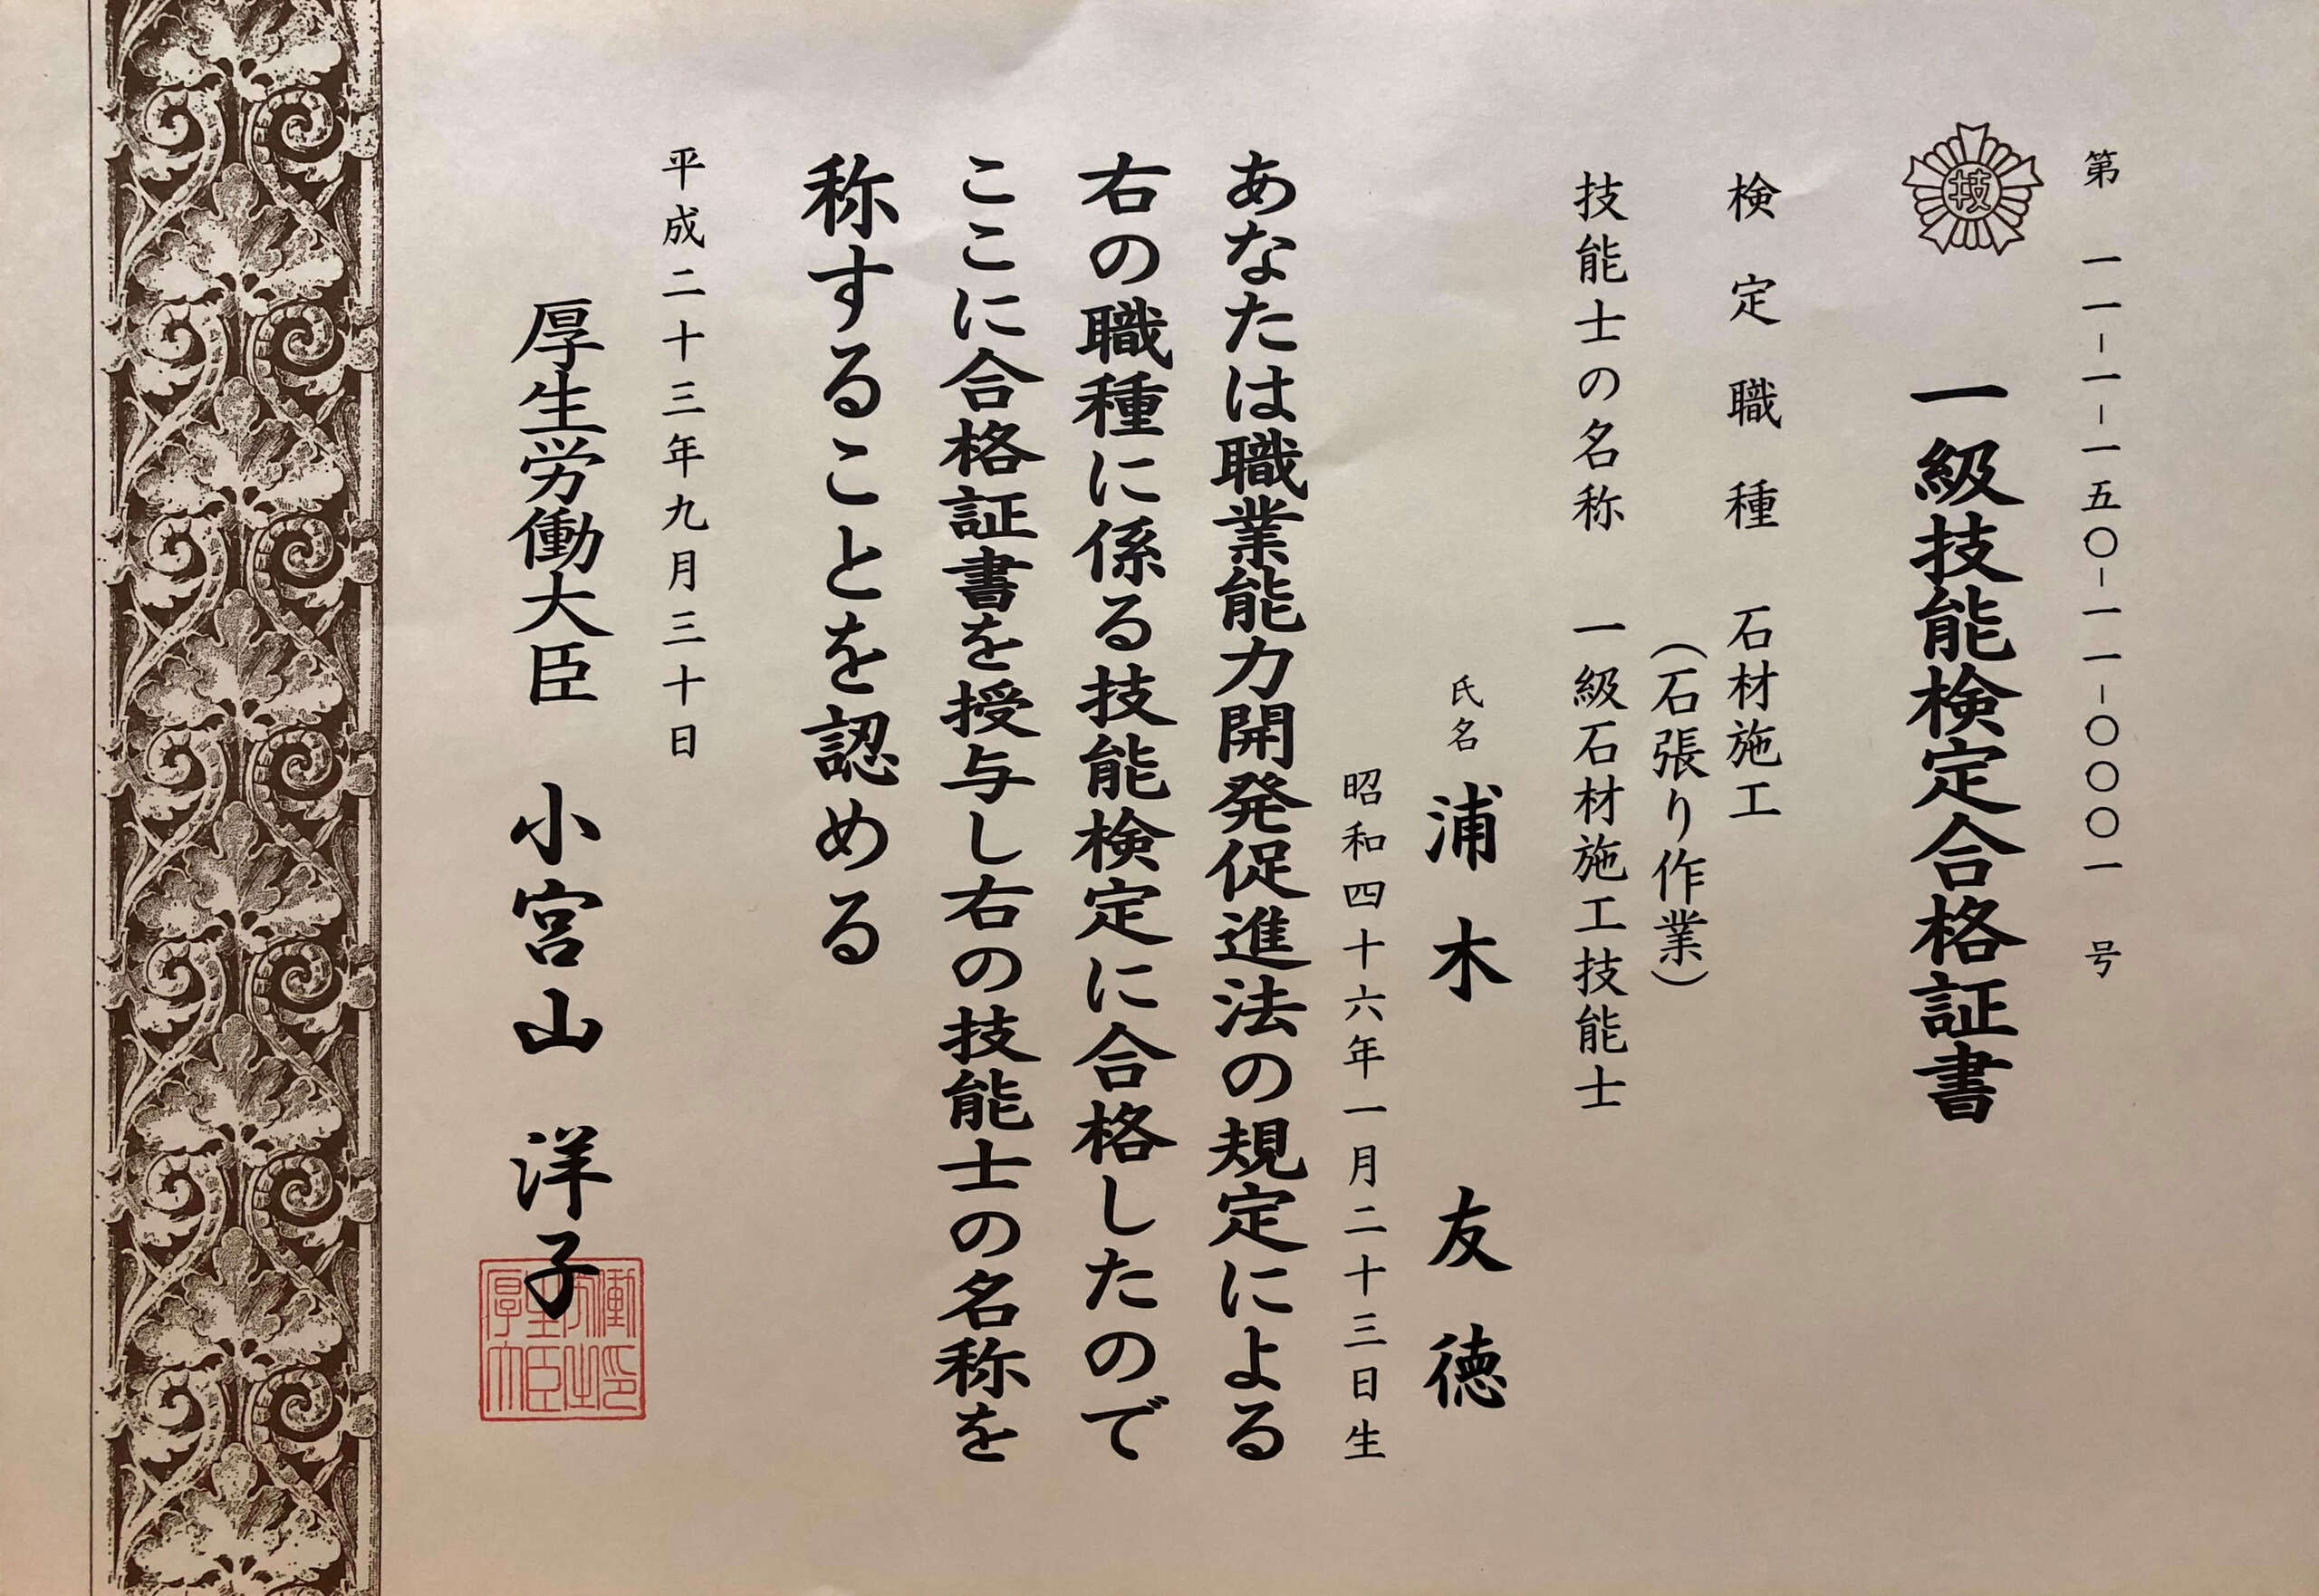 第 一一-一-一五〇-一一-〇〇〇一 号
技
一級技能検定合格証書
検定職種 石材施工
(石張り作業)
技能士の名称 一級石材施工技能士
氏名 浦木 友徳
昭和四十六年一月二十三日生
あなたは職業能力開発促進法の規定による
右の職種に係る技能検定に合格したので
ここに合格証書を授与し右の技能士の名称を
称することを認める
平成二十三年九月三十日
厚生労働大臣 小宮山 洋子
厚生労働大臣之印